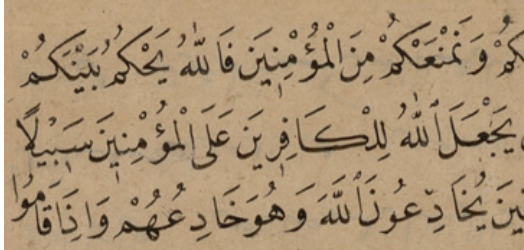 كُمْ وَنَمْنَعْكُمْ مِنَ الْمُؤْمِنِينَ فَاللّٰهُ يَحْكُمُ بَيْنَكُمْ
يَجْعَلَ اللّٰهُ لِلْكَافِرِينَ عَلَى الْمُؤْمِنِينَ سَبِيلًا
ينَ يُخَادِعُونَ اللّٰهَ وَهُوَ خَادِعُهُمْ وَاِذَا قَامُوا